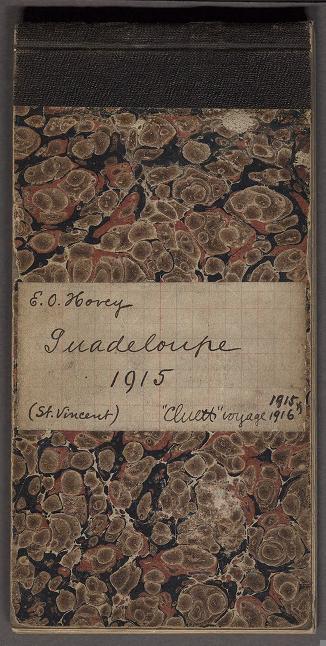 E.O. Hovey
Guadeloupe
1915
(St. Vincent) "Cluett" voyage 1915,
1916"